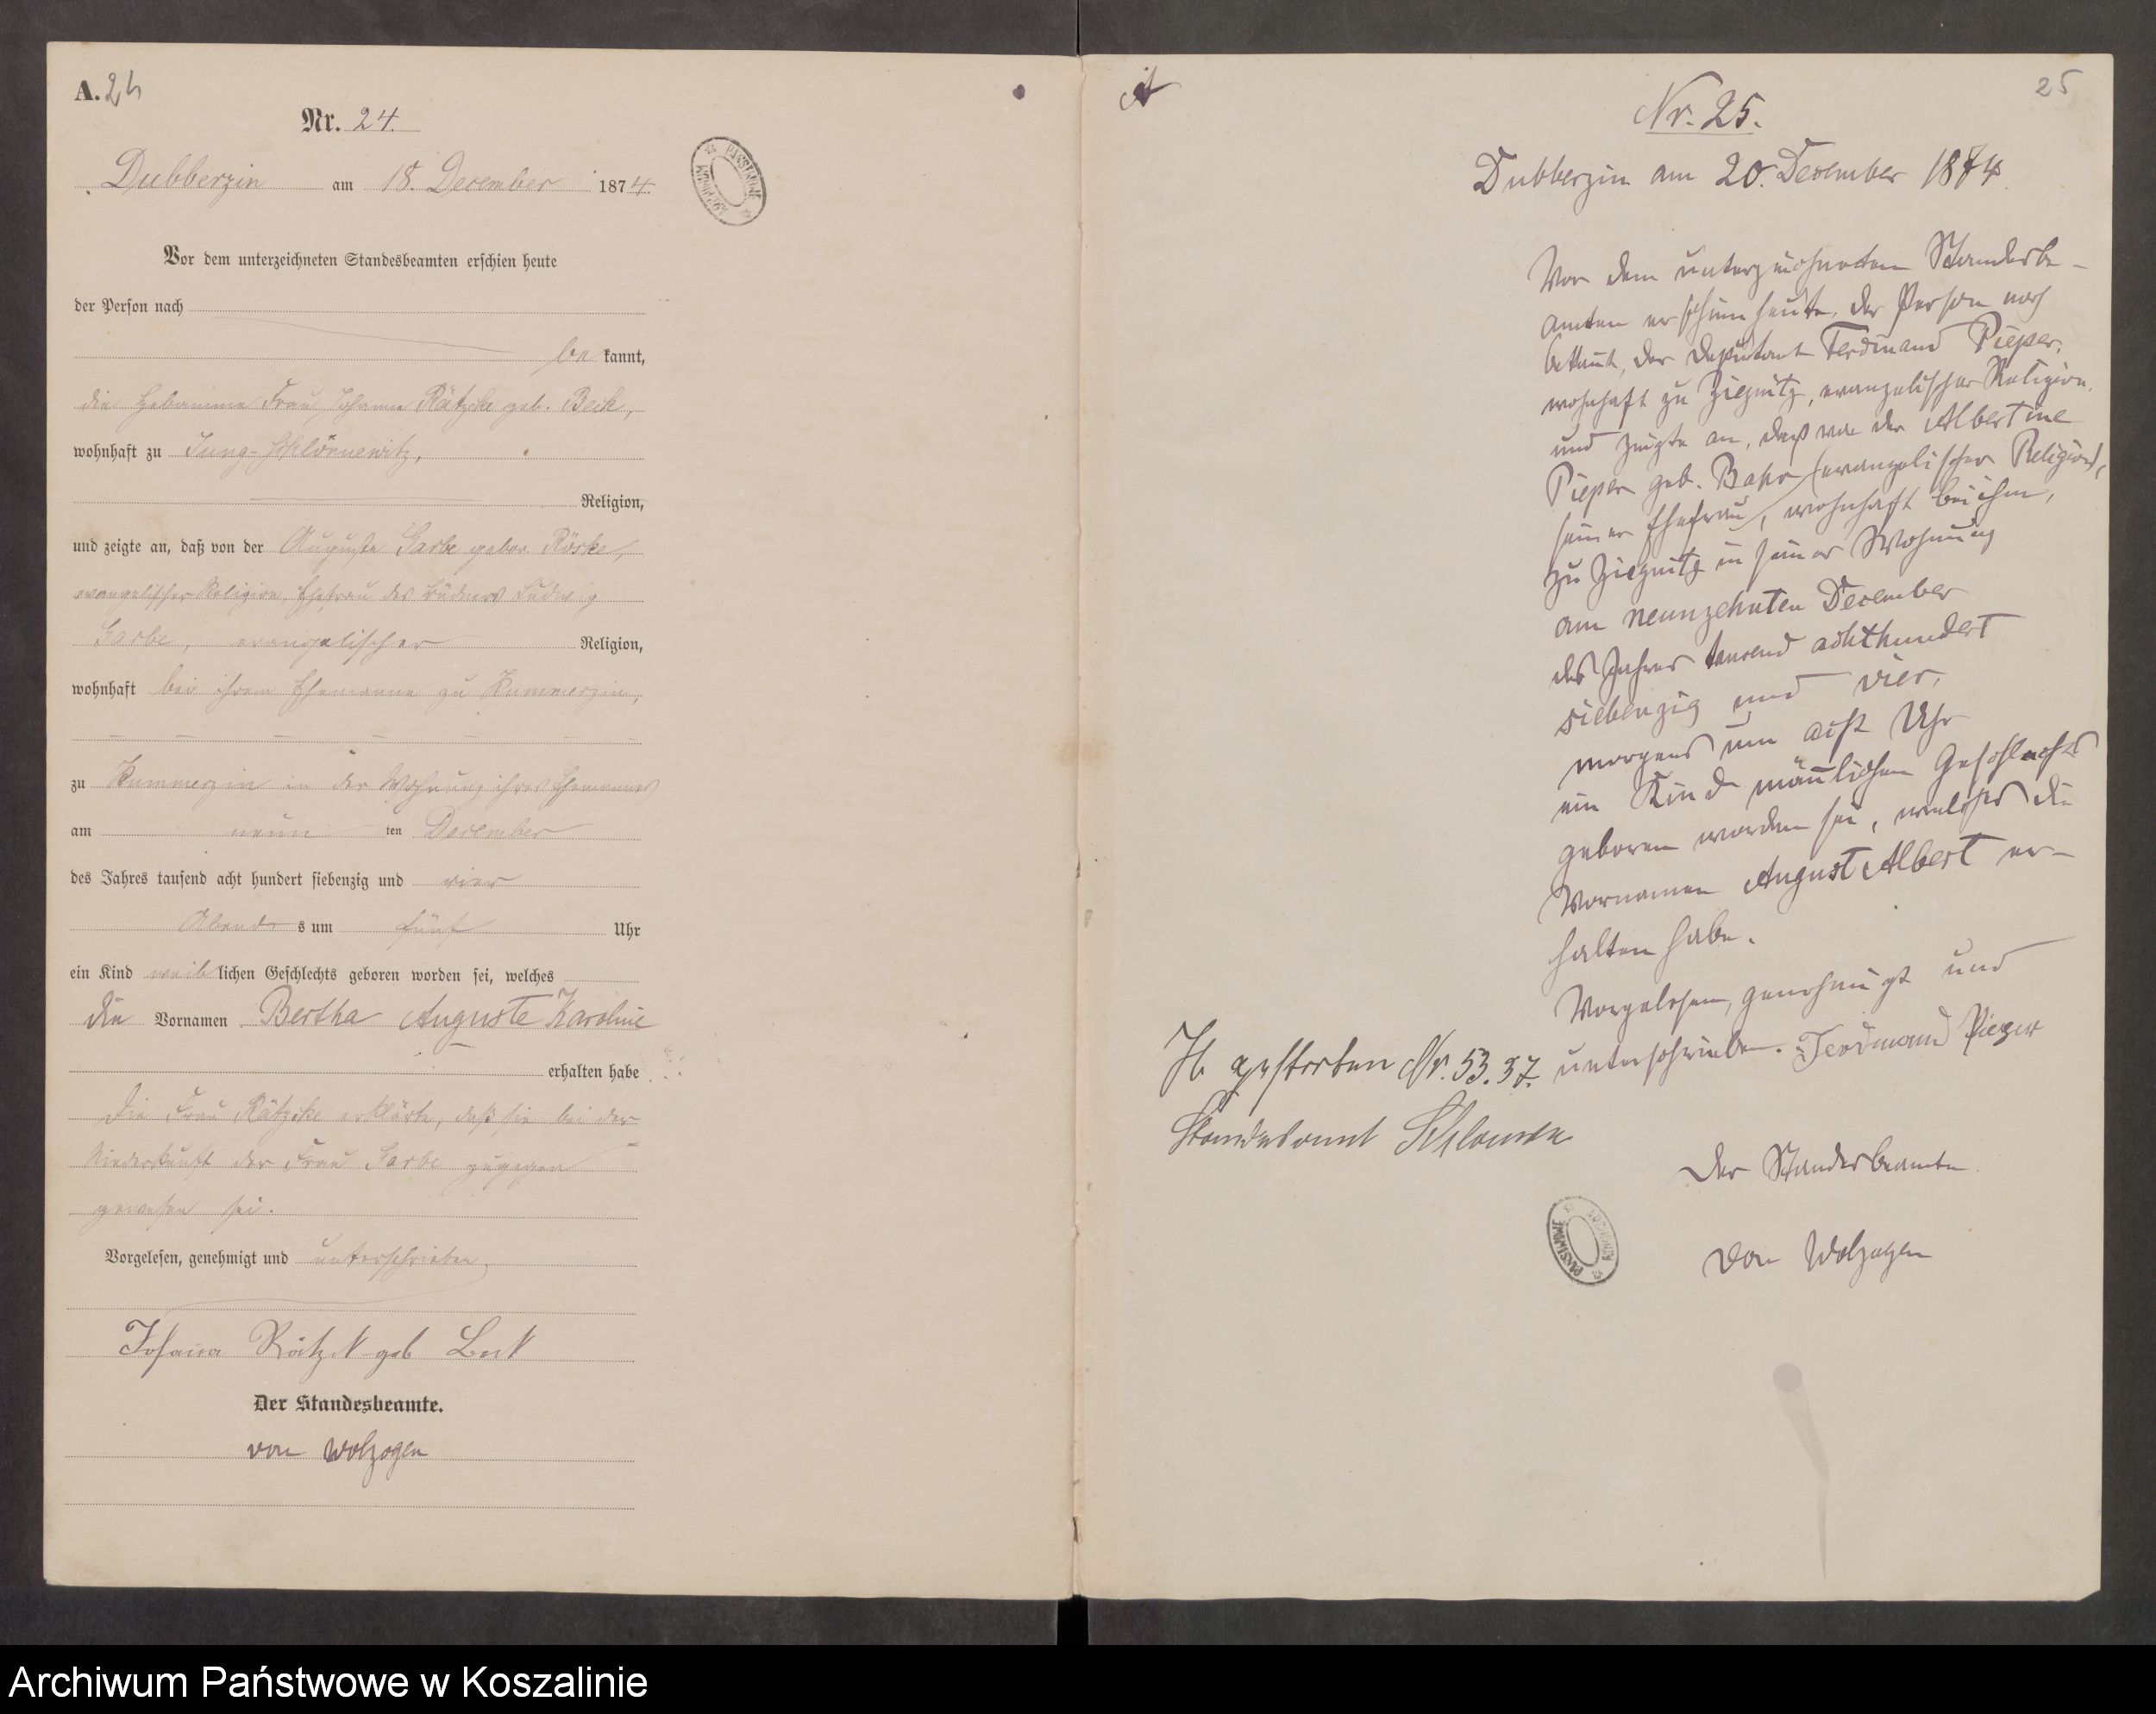 A. 24
Nr. 24.
Dubberzin am 18. December 1874.
Vor dem unterzeichneten Standesbeamten erschien heute
der Person nach
be kannt,
die Hebamme Frau Johanne Rätzke geb. Beck,
wohnhaft zu Jung-Schlönnewitz,
Religion,
und zeigte an, daß von der Auguste Garbe geborne Röske,
evangelischer Religion, Ehefrau des Büdners Ludwig
Garbe, evangelischer Religion,
wohnhaft bei ihrem Ehemanne zu Kummerzin,
zu Kummerzin in der Wohnung ihres Ehemannes
am neun ten December
des Jahres tausend acht hundert siebenzig und vier
Abends um fünf Uhr
ein Kind weiblichen Geschlechts geboren worden sei, welches
die Vornamen Bertha Auguste Karoline
erhalten habe
Die Frau Rätzke erklärte, daß sie bei der
Niederkunft der Frau Garbe zugegen
gewesen sei.
Vorgelesen, genehmigt und unterschrieben,
Johana geb
Der Standesbeamte.
von Wolzogen
A
25
Nr. 25.
Dubberzin am 20. December 1874.
Vor dem unterzeichneten Standesbe-
amten erschien heute, der Person nach
bekannt, der Deputant Ferdinand Pieper,
wohnhaft zu Ziegnitz, evangelischer Religion,
und zeigte an, daß von der Albertine
Pieper geb. Bahr (evangelischer Religion),
seiner Ehefrau, wohnhaft bei ihm,
zu Ziegnitz in seiner Wohnung
am neunzehnten December
des Jahres tausend achthundert
siebenzig und vier,
morgens um acht Uhr
ein Kind mänlichen Geschlechts
geboren worden sei, welches die
Vornamen August Albert er-
halten habe.
Vorgelesen, genehmigt und
unterschrieben. Ferdinand Pieper
Ist gestorben Nr. 53. 37.
Standesamt
Der Standesbeamte.
von Wolzogen
Archiwum Państwowe w Koszalinie